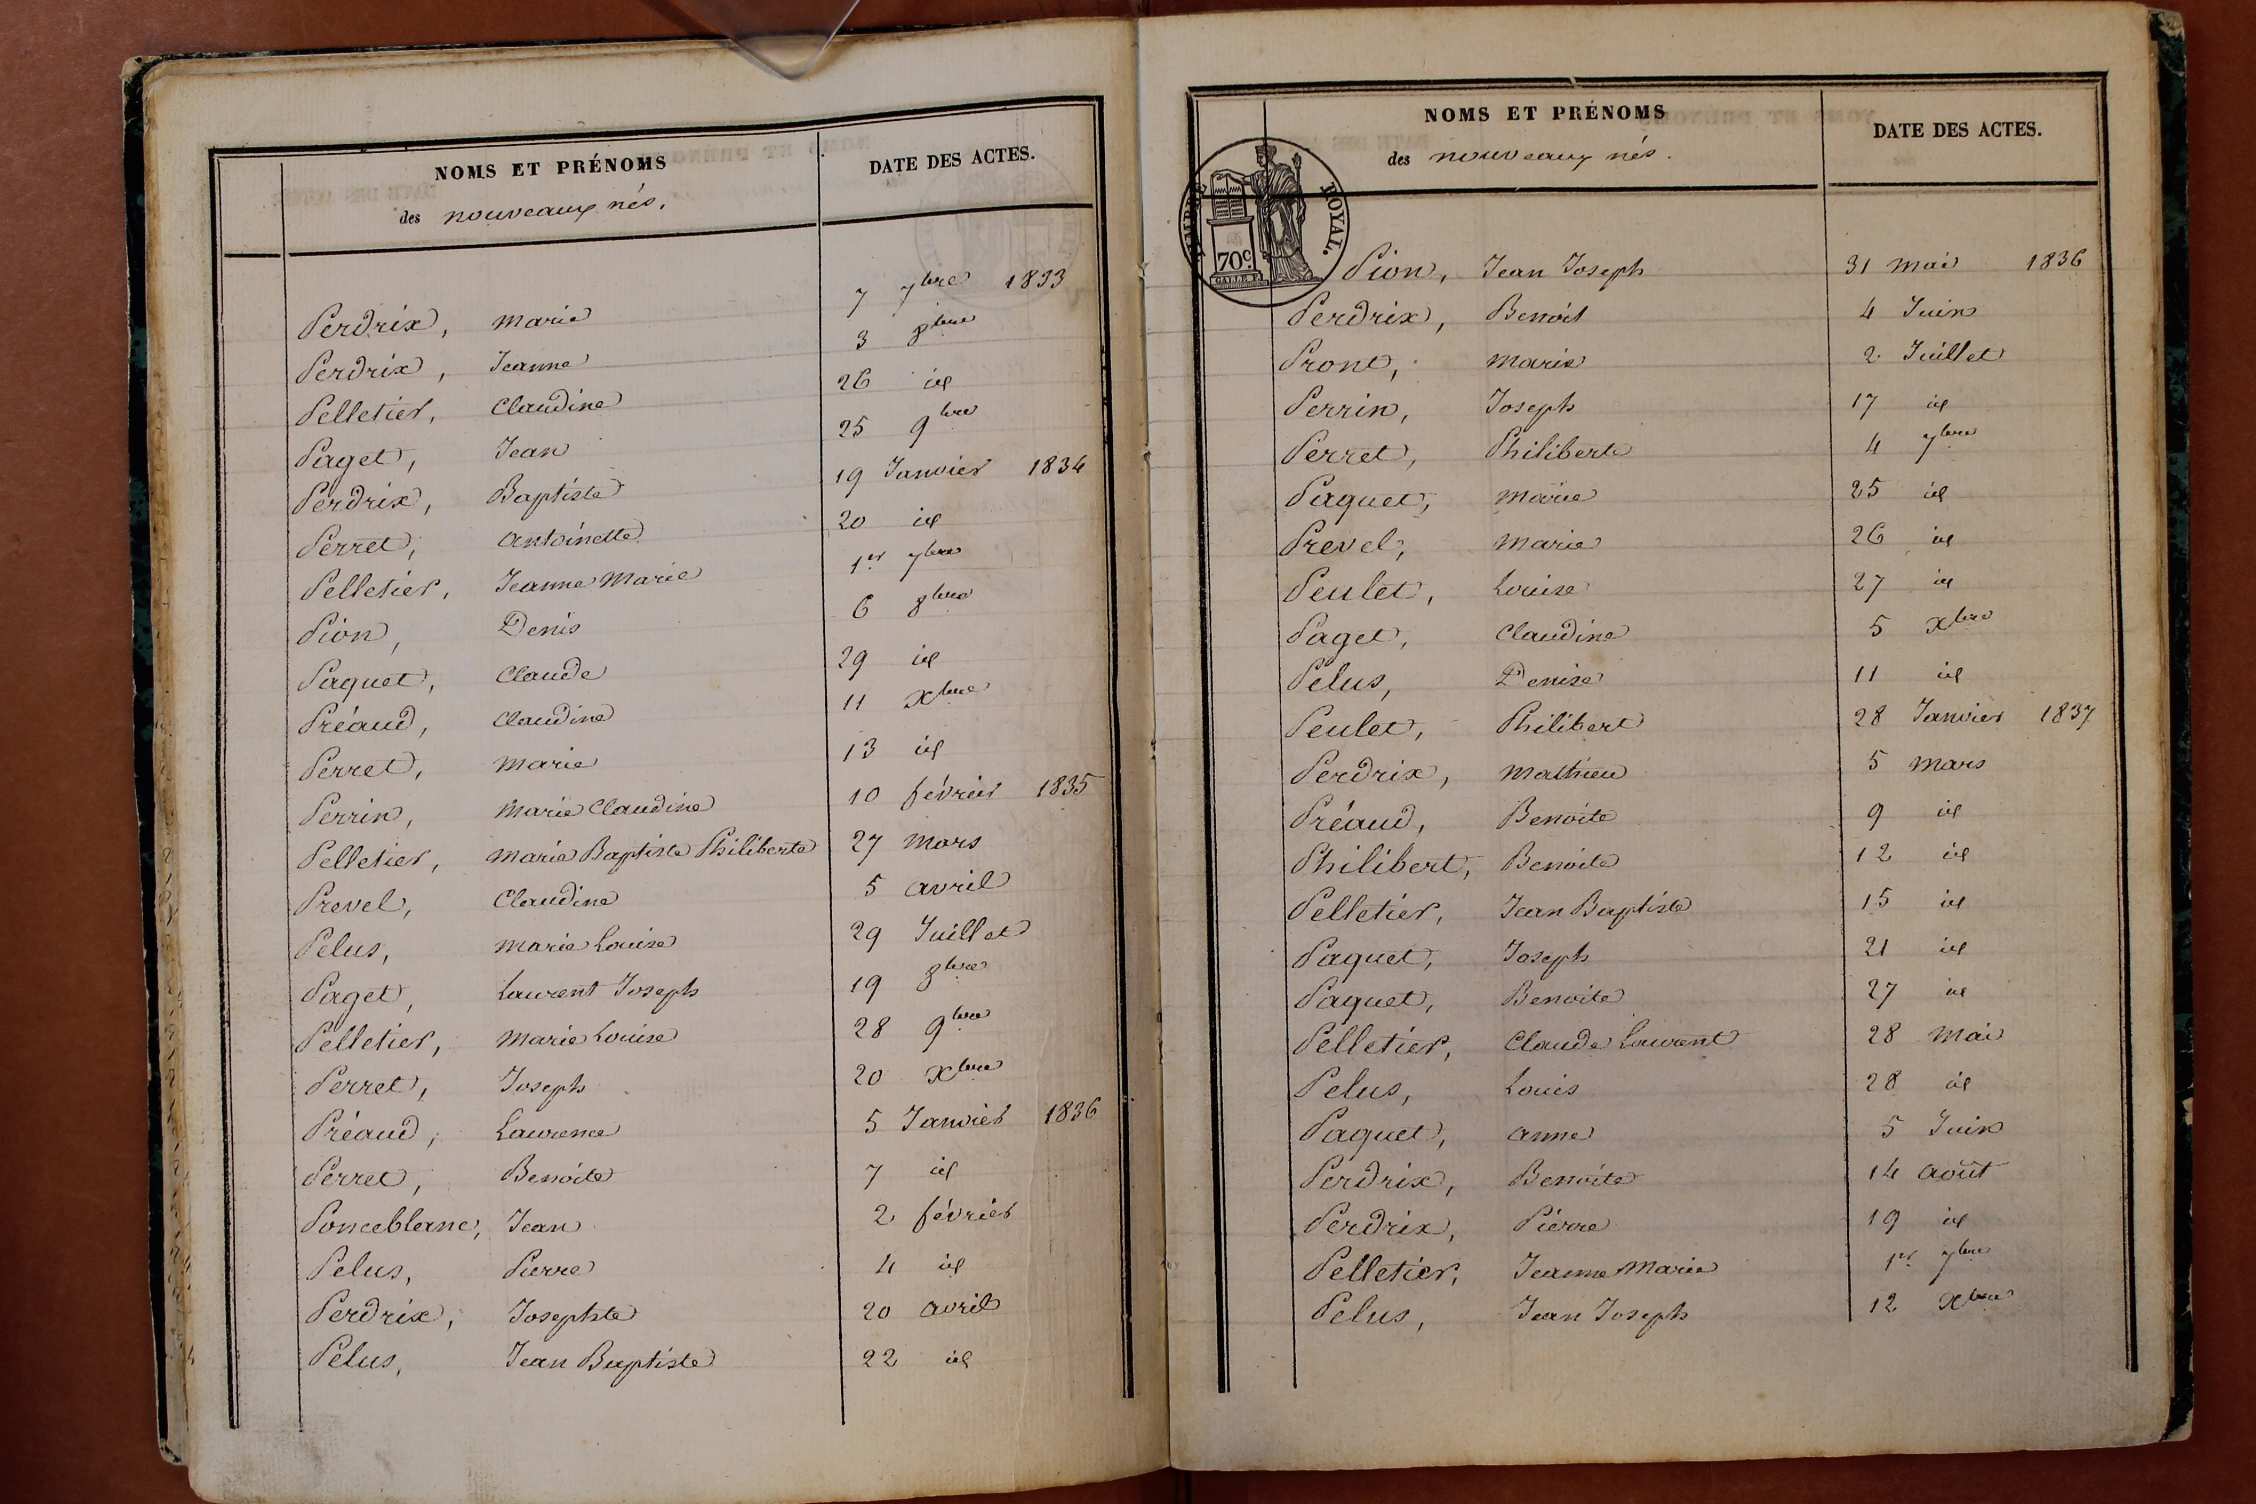 NOMS ET PRÉNOMS
des nouveaux nés.
DATE DES ACTES.
Perdrix, Marie 7 7bre 1833
Perdrix, Jeanne 3 8bre
Pelletier, Claudine 26 id
Paget, Jean 25 9bre
Perdrix, Baptiste 19 Janvier 1834
Perret, Antoinette 20 id
Pelletier, Jeanne Marie 1er 7bre
Pion, Denis 6 8bre
Paquet, Claude 29 id
Préaud, Claudine 11 Xbre
Perret, Marie 13 id
Perrin, Marie Claudine 10 février 1835
Pelletier, Marie Baptiste Philiberte 27 Mars
Prevel, Claudine 5 avril
Pelus, Marie Louise 29 Juillet
Paget, Laurent Joseph 19 8bre
Pelletier, Marie Louise 28 9bre
Perret, Joseph 20 Xbre
Préaud, Laurence 5 Janvier 1836
Perret, Benoite 7 id
Ponceblanc, Jean 2 février
Pelus, Pierre 4 id
Perdrix, Josephte 20 avril
Pelus, Jean Baptiste 22 id
NOMS ET PRÉNOMS
des nouveaux nés.
DATE DES ACTES.
TIMBRE ROYAL.
70c.
Pion, Jean Joseph 31 Mai 1836
Perdrix, Benoit 4 Juin
Pront, Marie 2 Juillet
Perrin, Joseph 17 id
Perret, Philiberte 4 7bre
Paquet, Marie 25 id
Prevel, Marie 26 id
Peulet, Louise 27 id
Paget, Claudine 5 Xbre
Pelus, Denise 11 id
Peulet, Philibert 28 Janvier 1837
Perdrix, Mathieu 5 Mars
Préaud, Benoite 9 id
Philibert, Benoite 12 id
Pelletier, Jean Baptiste 15 id
Paquet, Joseph 21 id
Paquet, Benoite 27 id
Pelletier, Claude Laurent 28 Mai
Pelus, Louis 28 id
Paquet, Anne 5 Juin
Perdrix, Benoite 14 août
Perdrix, Pierre 19 id
Pelletier, Jeanne Marie 1er 7bre
Pelus, Jean Joseph 12 Xbre